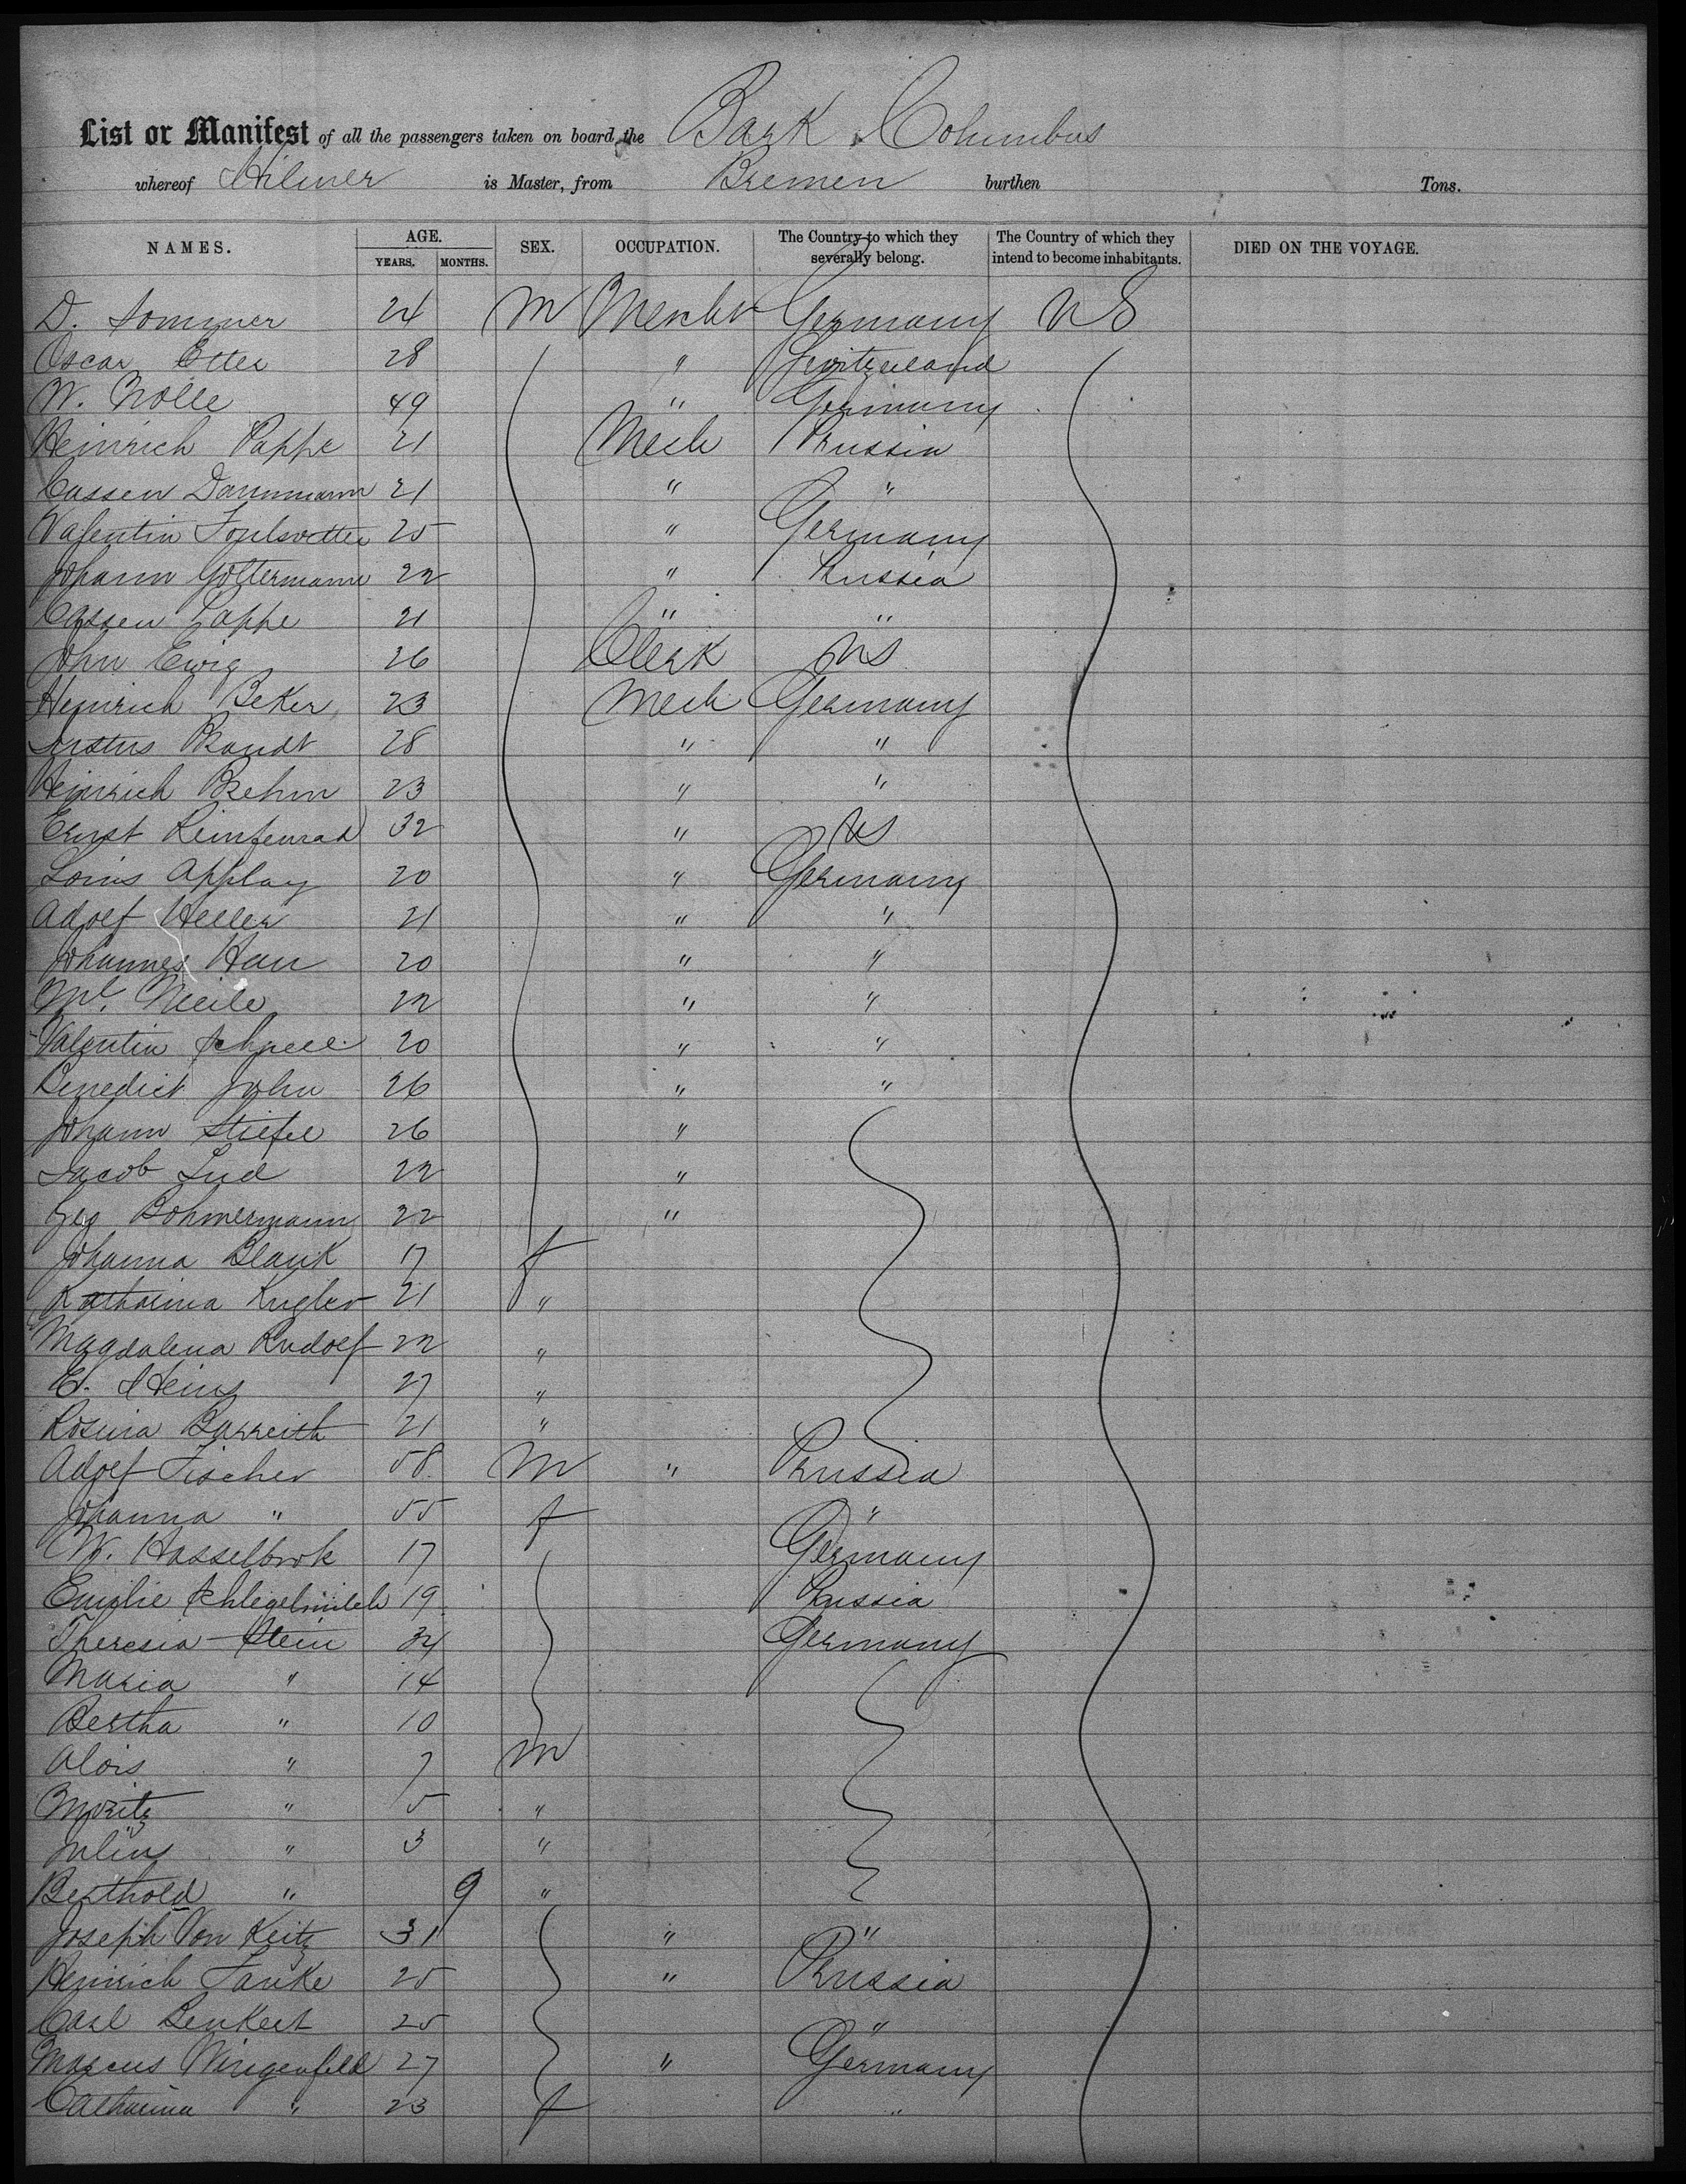 List or Manifest of all the passengers taken on board, the Bark Columbus
whereof Hilmer is Master, from Bremen burthen Tons.
NAMES. AGE. YEARS. MONTHS. SEX. OCCUPATION. The Country to which they severally belong. The Country of which they intend to become inhabitants. DIED ON THE VOYAGE.
D. Sommer 24 M Germany US
Oscar Etter 28 " Switzerland
W. Nolle 49 " Germany
Heinrich Pappe 21 Mech Prussia
Cassen Dammann 21 " "
Valentin 25 " Germany
Johann Goltermann 22 " Prussia
Cassen Pappe 21 " "
John Ewig 26 Clerk US
Heinrich Beker 23 Mech Germany
Brandt 28 " "
Heinrich Brehm 23 " "
Ernst 32 " US
Louis Applay 20 " Germany
Adolf Heller 21 " "
Johannes Hau 20 " "
22 " "
Valentin Schnell 20 " "
Benedict John 26 " "
Johann Stiefel 26 "
Jacob Lud 22 "
Geo Bohmermann 22 "
Johanna Blank 17 f
Katharina Kugler 21 "
Magdalena Rudolf 22 "
E. Heins 27 "
Rosina Barreith 21 "
Adolf Fischer 58 M " Prussia
Johanna " 55 f "
W. Hasselbrok 17 Germany
Emilie Schlegelmilch 19 Prussia
Theresia Stein 34 Germany
Maria " 14
Bertha " 10
Alois " 7 M
Moritz " 5 "
Julius " 3 "
Berthold " 9 "
Joseph Von Keitz 31 " "
Heinrich Fanke 25 " Prussia
Carl Benkert 25 "
Marcus Wingenfeld 27 " Germany
Catharina " 23 f "